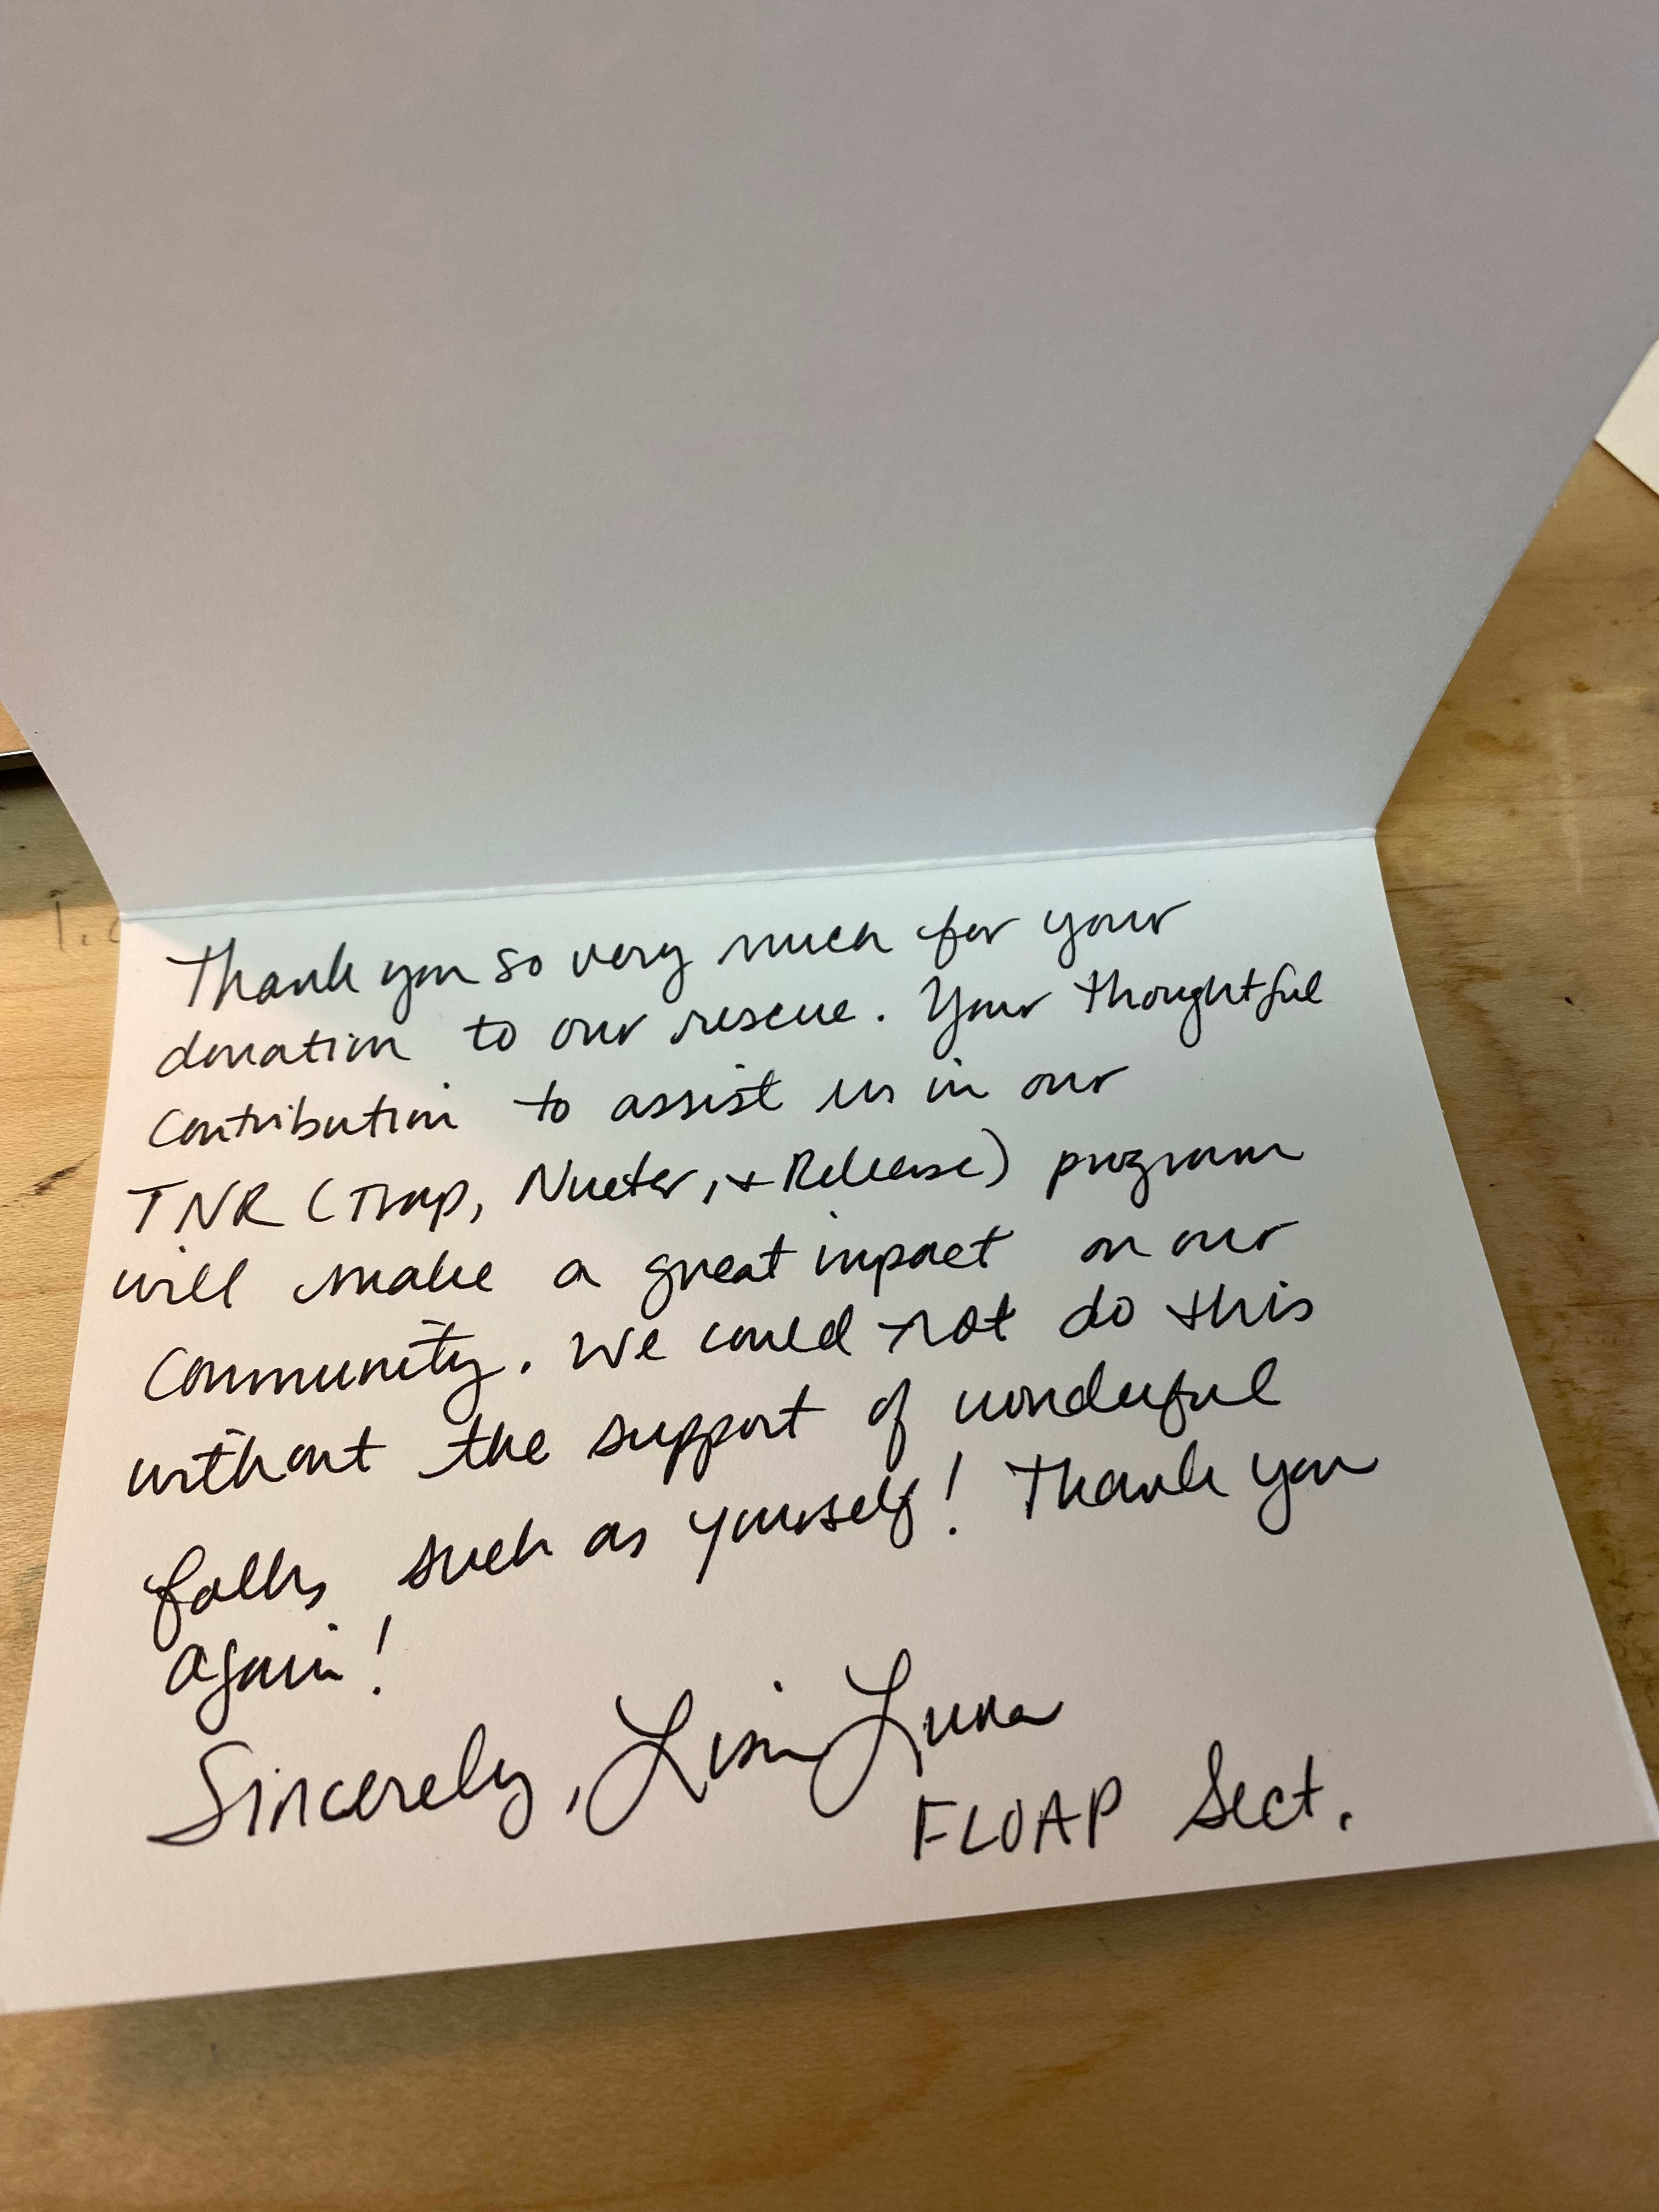 Thank you so very much for your
donation to our rescue. Your thoughtful
Contribution to assist us in our
TNR (Trap, Nueter, + Release) program
will make a great impact on our
Community. We could not do this
without the support of wonderful
folks such as yourself! Thank you
again!
Sincerely, Luna
FLOAP Sect.